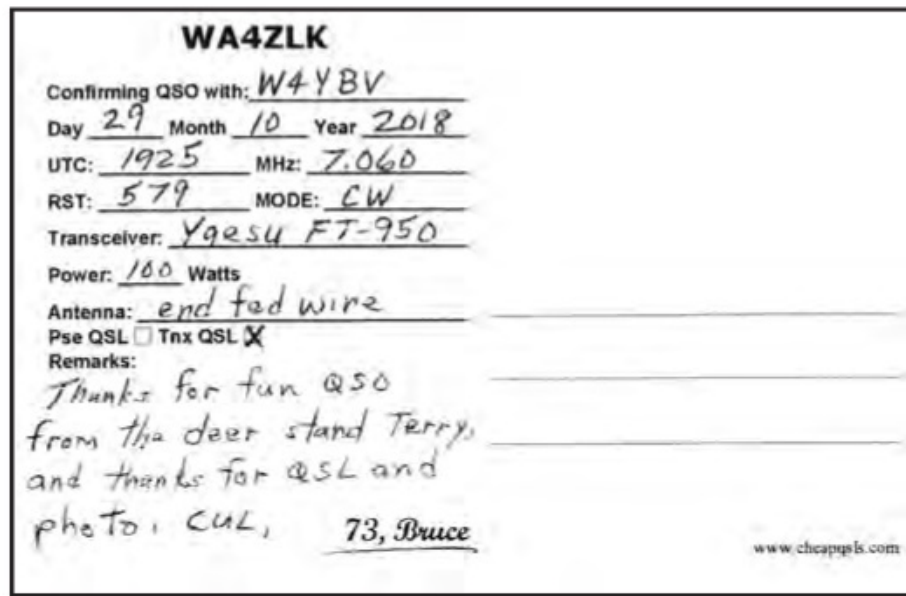 WA4ZLK
Confirming QSO with: W4YBV
Day 29 Month 10 Year 2018
UTC: 1925 MHz: 7.060
RST: 579 MODE: CW
Transceiver: Yaesu FT-950
Power: 100 Watts
Antenna: end fed wire
Pse QSL ☐ Tnx QSL ☒
Remarks:
Thanks for fun QSO
from the deer stand Terry,
and thanks for QSL and
photo. CUL,
73, Bruce
www.cheapqsls.com